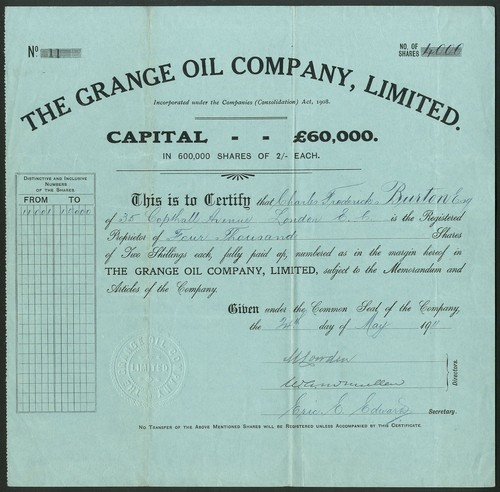 No 11
NO. OF SHARES 4000
THE GRANGE OIL COMPANY, LIMITED.
Incorporated under the Companies (Consolidation) Act, 1908.
CAPITAL - - £60,000.
IN 600,000 SHARES OF 2/- EACH.
DISTINCTIVE AND INCLUSIVE
NUMBERS
OF THE SHARES.
FROM TO
This is to Certify that Charles Frederick Burton Esq
of 35 Copthall Avenue London E.C. is the Registered
Proprietor of Four Thousand Shares
of Two Shillings each, fully paid up, numbered as in the margin hereof in
THE GRANGE OIL COMPANY, LIMITED, subject to the Memorandum and
Articles of the Company.
Given under the Common Seal of the Company,
the 24th day of May 1911
Directors.
Eric E. Edwards Secretary.
GRANGE OIL CO
LIMITED
NO TRANSFER OF THE ABOVE MENTIONED SHARES WILL BE REGISTERED UNLESS ACCOMPANIED BY THIS CERTIFICATE.